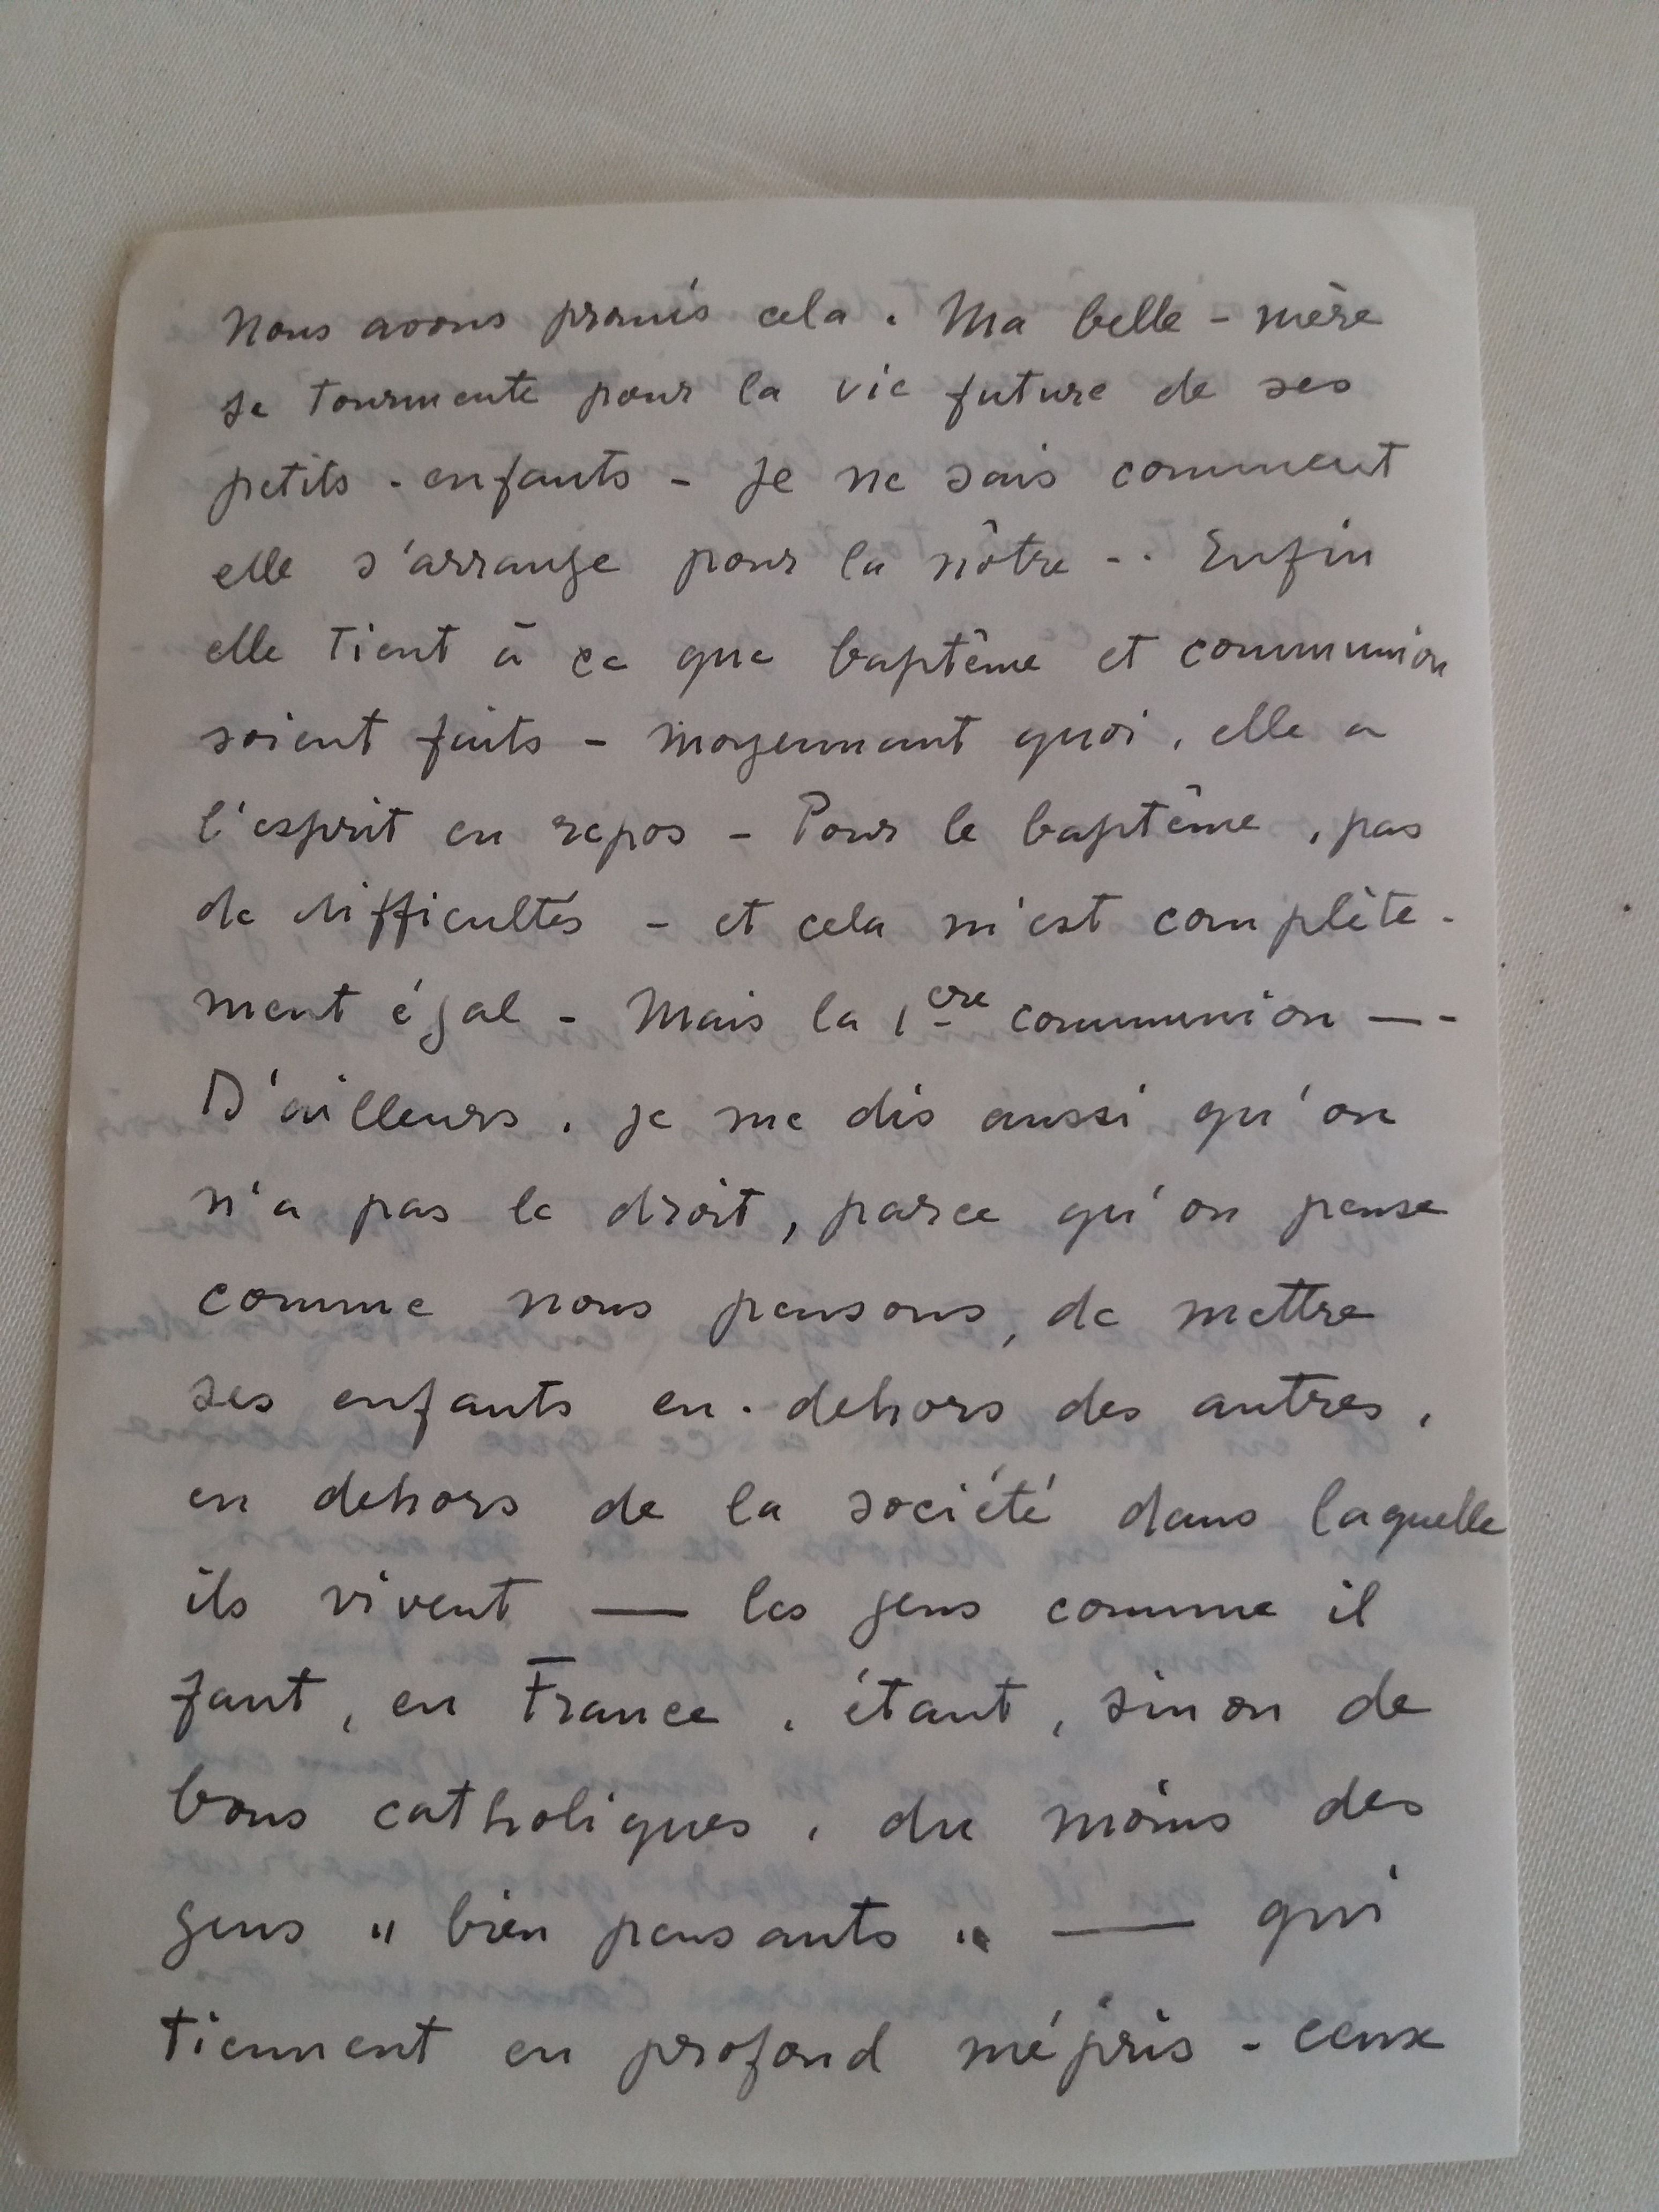 Nous avons promis cela. Ma belle-mère
se tourmente pour la vie future de ses
petits-enfants - Je ne sais comment
elle s'arrange pour la nôtre -.. Enfin
elle tient à ce que baptême et communion
soient faits - moyennant quoi, elle a
l'esprit en repos - Pour le baptême, pas
de difficultés - et cela m'est complète-
ment égal - Mais la 1ère communion —-
D'ailleurs, je me dis aussi qu'on
n'a pas le droit, parce qu'on pense
comme nous pensons, de mettre
ses enfants en-dehors des autres,
en dehors de la société dans laquelle
ils vivent — les gens comme il
faut, en France, étant, sinon de
bons catholiques, du moins des
gens "bien pensants" — qui
tiennent en profond mépris - ceux